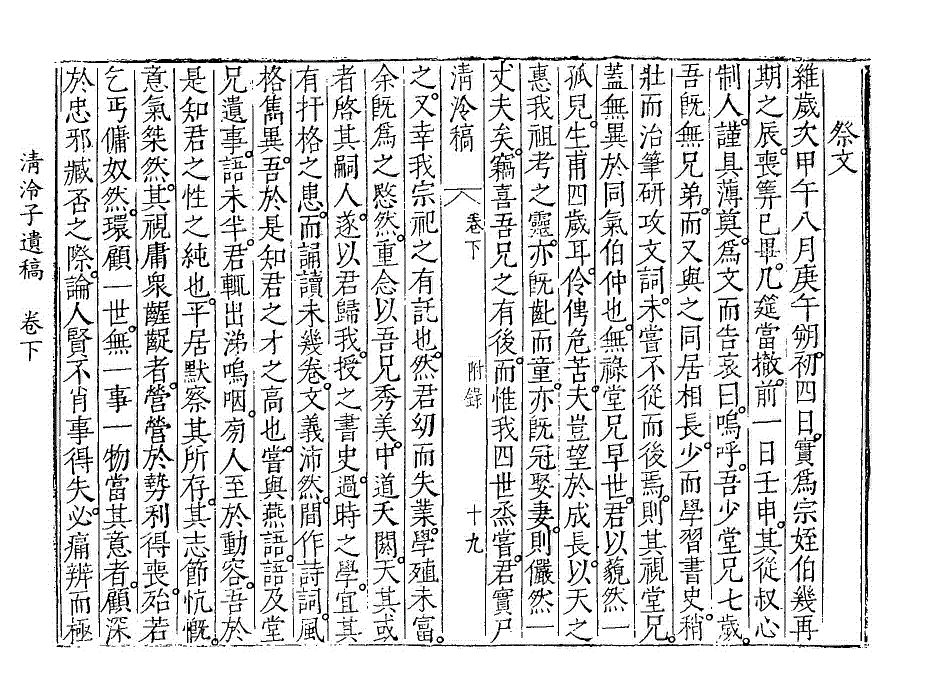 祭文
維歲次甲午八月庚午朔初四日實爲宗姪伯幾再
期之辰喪筭已畢几筵當撤前一日壬申其從叔心
制人謹具薄奠爲文而告哀曰嗚呼吾少堂兄七歲
吾旣無兄弟而又與之同居相長少而學習書史稍
壯而治筆研攻文詞未嘗不從而後焉則其視堂兄
蓋無異於同氣伯仲也無祿堂兄早世君以藐然一
孤兒生甫四歲耳伶俜危苦夫豈望於成長以天之
惠我祖考之靈亦旣齔而童亦旣冠娶妻則儼然一
丈夫矣竊喜吾兄之有後而惟我四世烝嘗君實尸
淸泠稿 卷下 附錄 十九
之又幸我宗祀之有託也然君幼而失業學殖未富
余旣爲之愍然重念以吾兄秀美中道夭閼天其或
者啓其嗣人遂以君歸我授之書史過時之學宜其
有扞格之患而誦讀未幾卷文義沛然間作詩詞風
格雋異吾於是知君之才之高也嘗與燕語語及堂
兄遺事語未半君輒出涕嗚咽旁人至於動容吾於
是知君之性之純也平居默察其所存其志節忼慨
意氣桀然其視庸衆齷齪者營營於勢利得喪殆若
乞丐傭奴然環顧一世無一事一物當其意者顧深
於忠邪臧否之際論人賢不肖事得失必痛辨而極
淸泠子遺稿 卷下